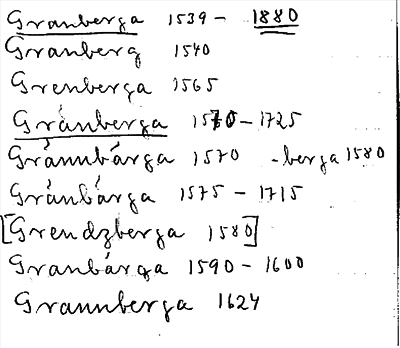 Granberga 1539 - 1880
Granberg 1540
Grenberga 1565
Gränberga 1570 - 1725
Grännbärga 1570 -berga 1580
Gränbärga 1575 - 1715
[Grendzberga 1580]
Granbärga 1590 - 1600
Grannberga 1624